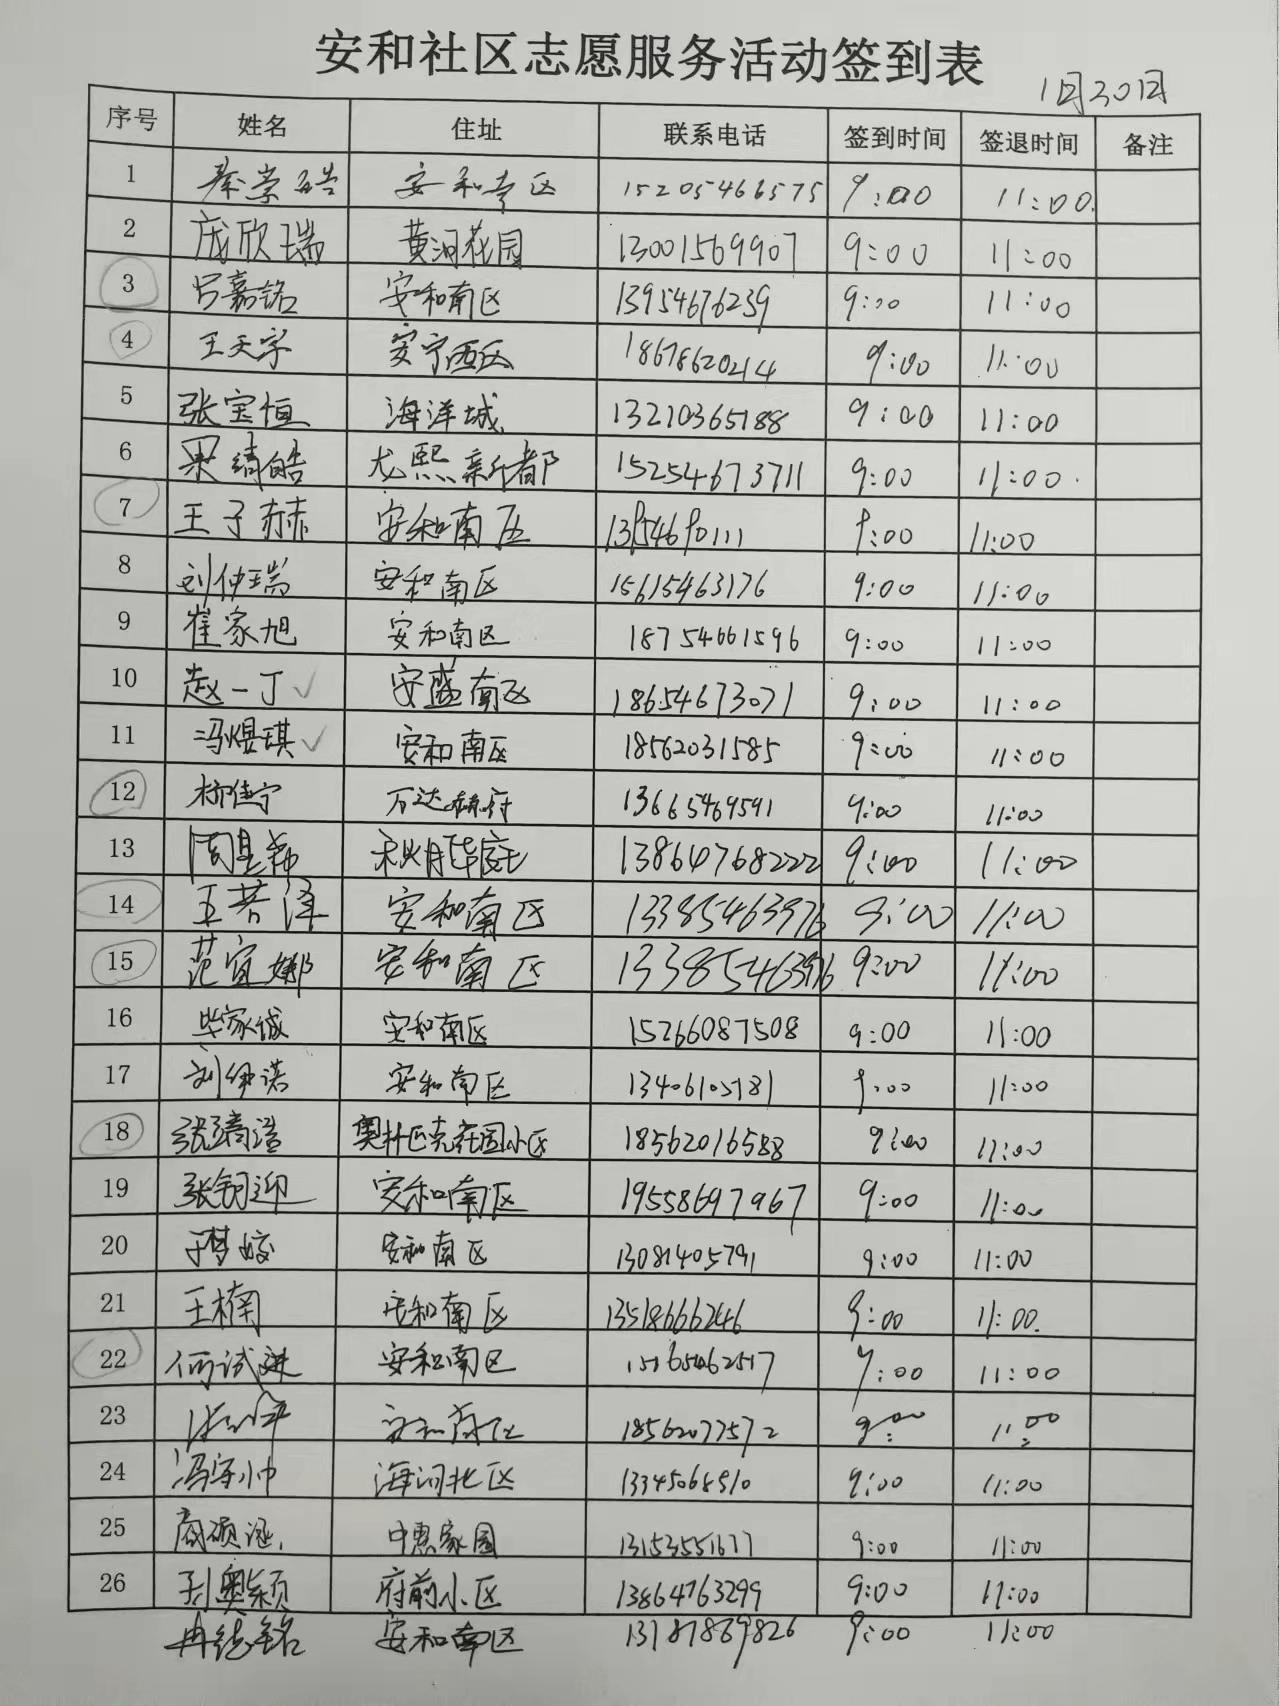 安和社区志愿服务活动签到表
1月30日
序号 姓名 住址 联系电话 签到时间 签退时间 备注
1 秦崇皓 安和南区 15205466575 9:00 11:00
2 庞欣瑞 黄河花园 13001569907 9:00 11:00
3 吕嘉铭 安和南区 13954676239 9:00 11:00
4 王天宇 安宁西区 18678620214 9:00 11:00
5 张宝恒 海洋城 13210365188 9:00 11:00
6 果绮皓 龙熙新都 15254673711 9:00 11:00
7 王子赫 安和南区 9:00 11:00
8 刘仲瑞 安和南区 15615463176 9:00 11:00
9 崔家旭 安和南区 18754661596 9:00 11:00
10 赵一丁 安盛南区 18654673071 9:00 11:00
11 冯煜琪 安和南区 18562031585 9:00 11:00
12 佳宁 万达 13665469591 9:00 11:00
13 周星 秋月华庭 13864768222 9:00 11:00
14 王若泽 安和南区 13385463976 9:00 11:00
15 范宜娜 安和南区 13385463976 9:00 11:00
16 毕家诚 安和南区 15266087508 9:00 11:00
17 刘伊诺 安和南区 13406105781 9:00 11:00
18 张 奥林匹克花园小区 18562016588 9:00 11:00
19 张钥迎 安和南区 19558697967 9:00 11:00
20 于梦姣 安和南区 13081405791 9:00 11:00
21 王楠 安和南区 13518666246 9:00 11:00
22 何试进 安和南区 9:00 11:00
23 安和南区 18562077572 9:00 11:00
24 冯宇帅 海河北区 13345068510 9:00 11:00
25 商硕涵 中惠家园 13153551677 9:00 11:00
26 刘奥颖 府前小区 13864763299 9:00 11:00
冉德铭 安和南区 13181889826 9:00 11:00